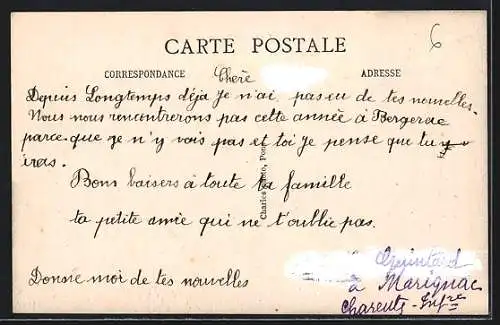 CARTE POSTALE
6
CORRESPONDANCE
ADRESSE
Chère
Depuis Longtemps déja je n'ai pas eu de tes nouvelles.
Nous nous rencontrerons pas cette année à Bergerac
parce que je n'y vais pas et toi je pense que tu y
iras.
Bons baisers à toute ta famille
ta petite amie qui ne t'oublie pas.
Donne moi de tes nouvelles
Quintard
à Marignac
Charente-Infre
Charles